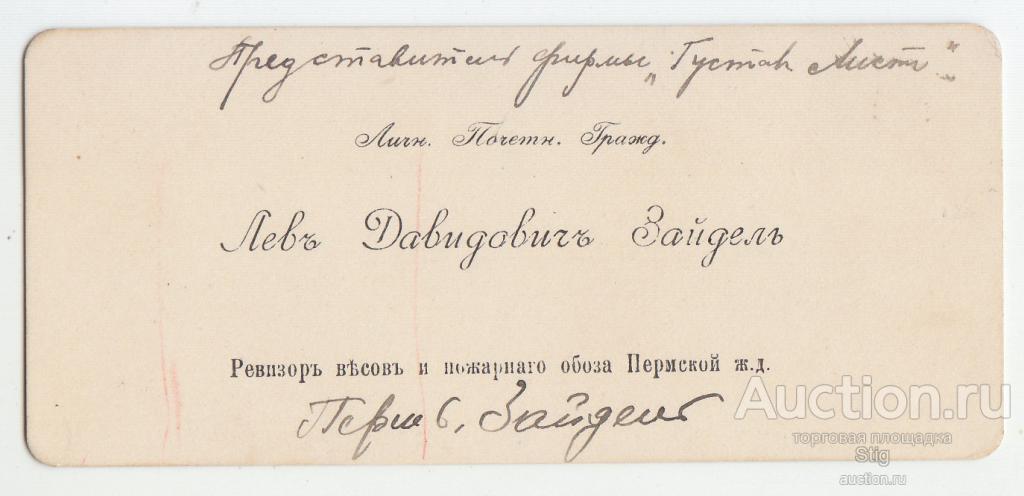 Представитель фирмы „Густав Лист"
Личн. Почетн. Гражд.
Левъ Давидовичъ Зайдель
Ревизоръ вѣсовъ и пожарнаго обоза Пермской ж.д.
Пермь, Зайдель
Auction.ru
торговая площадка
Stig
auction.ru